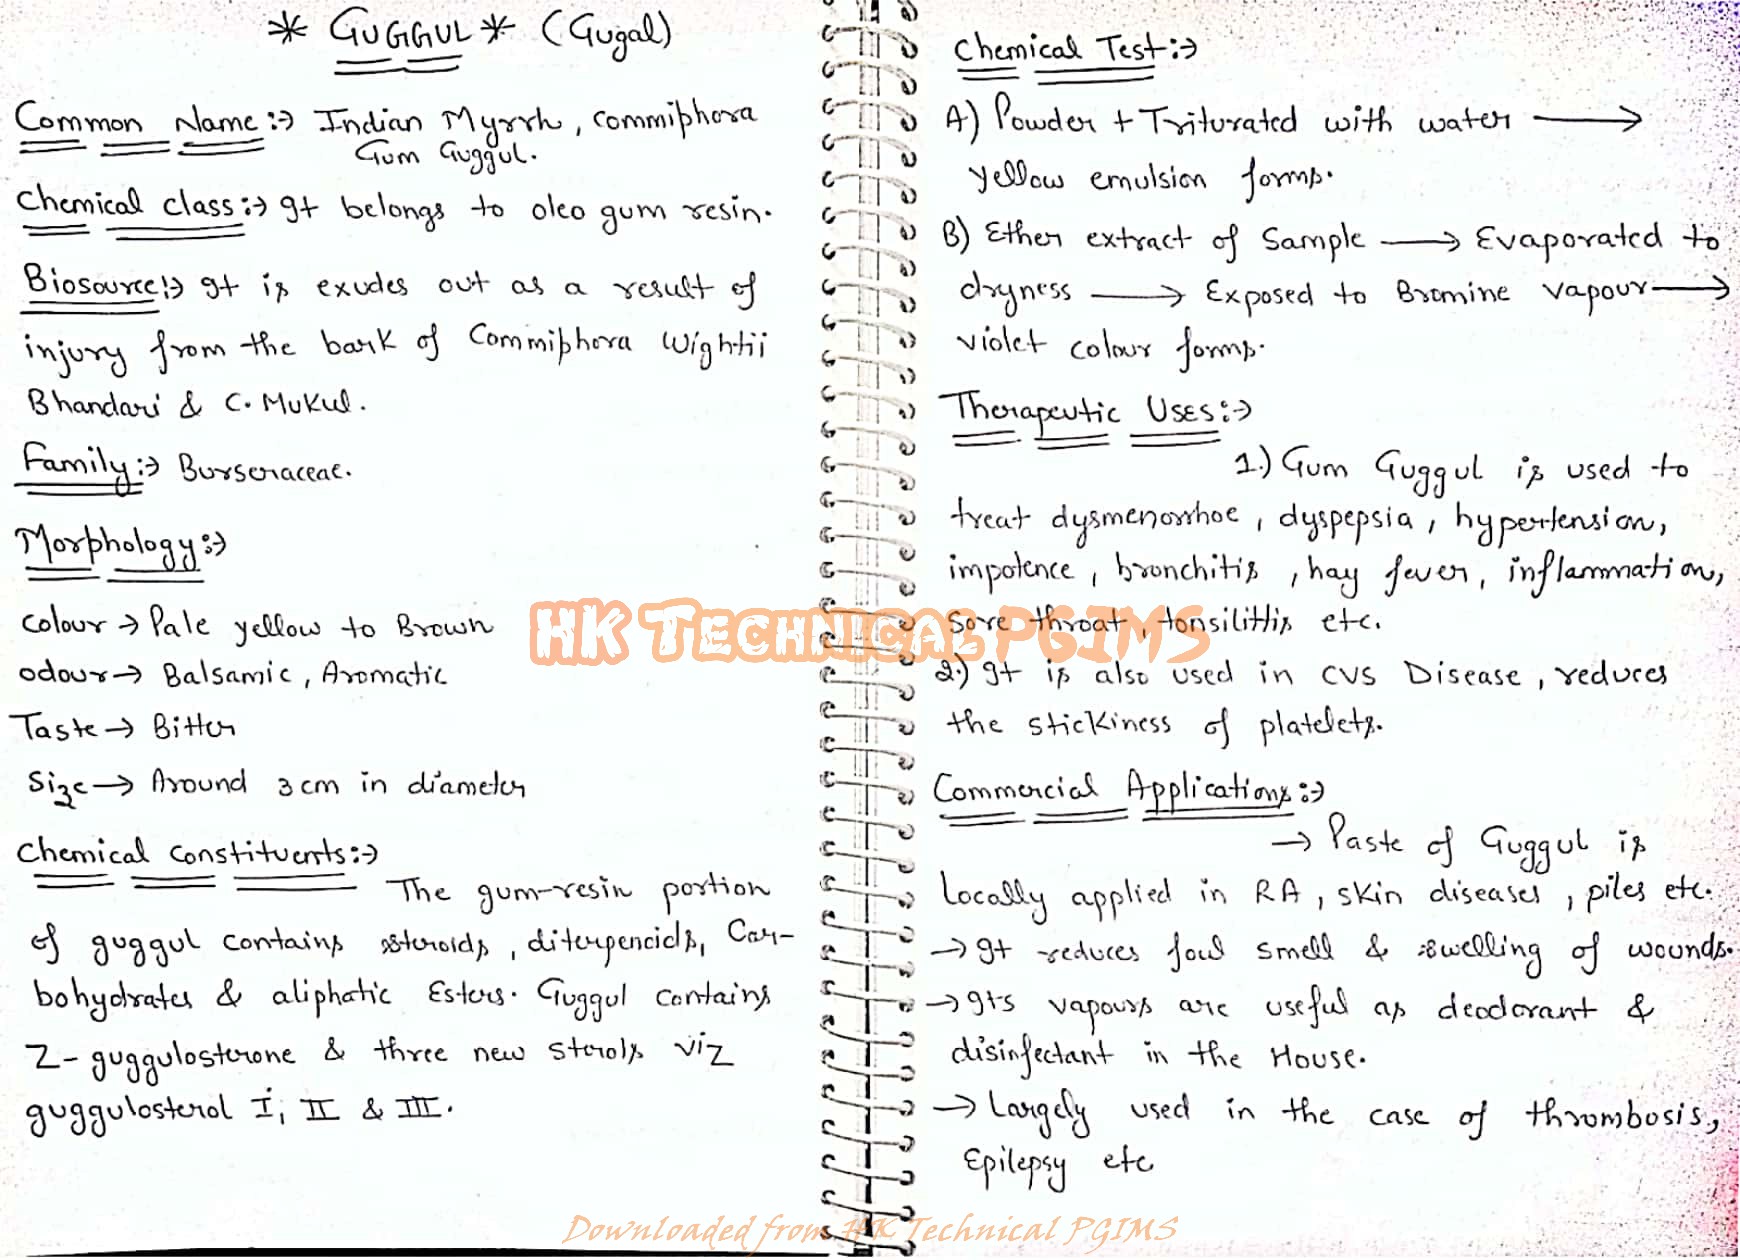 * GUGGUL * (Gugal)
Common Name :→ Indian Myrrh, Commiphora
Gum Guggul.
Chemical class :→ It belongs to oleo gum resin.
Biosource :→ It is exudes out as a result of
injury from the bark of Commiphora Wightii
Bhandari & C. Mukul.
Family :→ Burseraceae.
Morphology :→
Colour → Pale yellow to Brown
odour → Balsamic, Aromatic
Taste → Bitter
Size → Around 3 cm in diameter
Chemical Constituents :→
The gum-resin portion
of guggul contains steroids, diterpenoids, Car-
bohydrates & aliphatic Esters. Guggul contains
Z-guggulosterone & three new sterols viz
guggulosterol I, II & III.
Chemical Test :→
A) Powder + Triturated with water →
yellow emulsion forms.
B) Ether extract of Sample → Evaporated to
dryness → Exposed to Bromine vapour →
violet colour forms.
Therapeutic Uses :→
1.) Gum Guggul is used to
treat dysmenorrhoe, dyspepsia, hypertension,
impotence, bronchitis, hay fever, inflammation,
sore throat, tonsilittis etc.
2.) It is also used in CVS Disease, reduces
the stickiness of platelets.
Commercial Applications :→
→ Paste of Guggul is
Locally applied in RA, skin diseases, piles etc.
→ It reduces foul smell & swelling of wounds.
→ Its vapours are useful as deodorant &
disinfectant in the House.
→ Largely used in the case of thrombosis,
Epilepsy etc
HK Technical PGIMS
Downloaded from HK Technical PGIMS